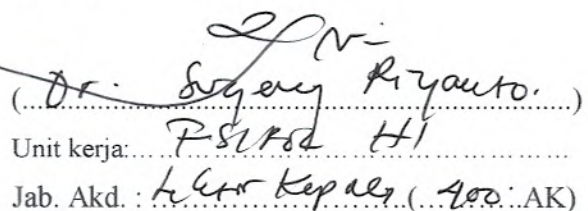 (Dr. Sugeng Riyanto.)
Unit kerja: HI
Jab. Akd. : Lektor Kepala (400 AK)